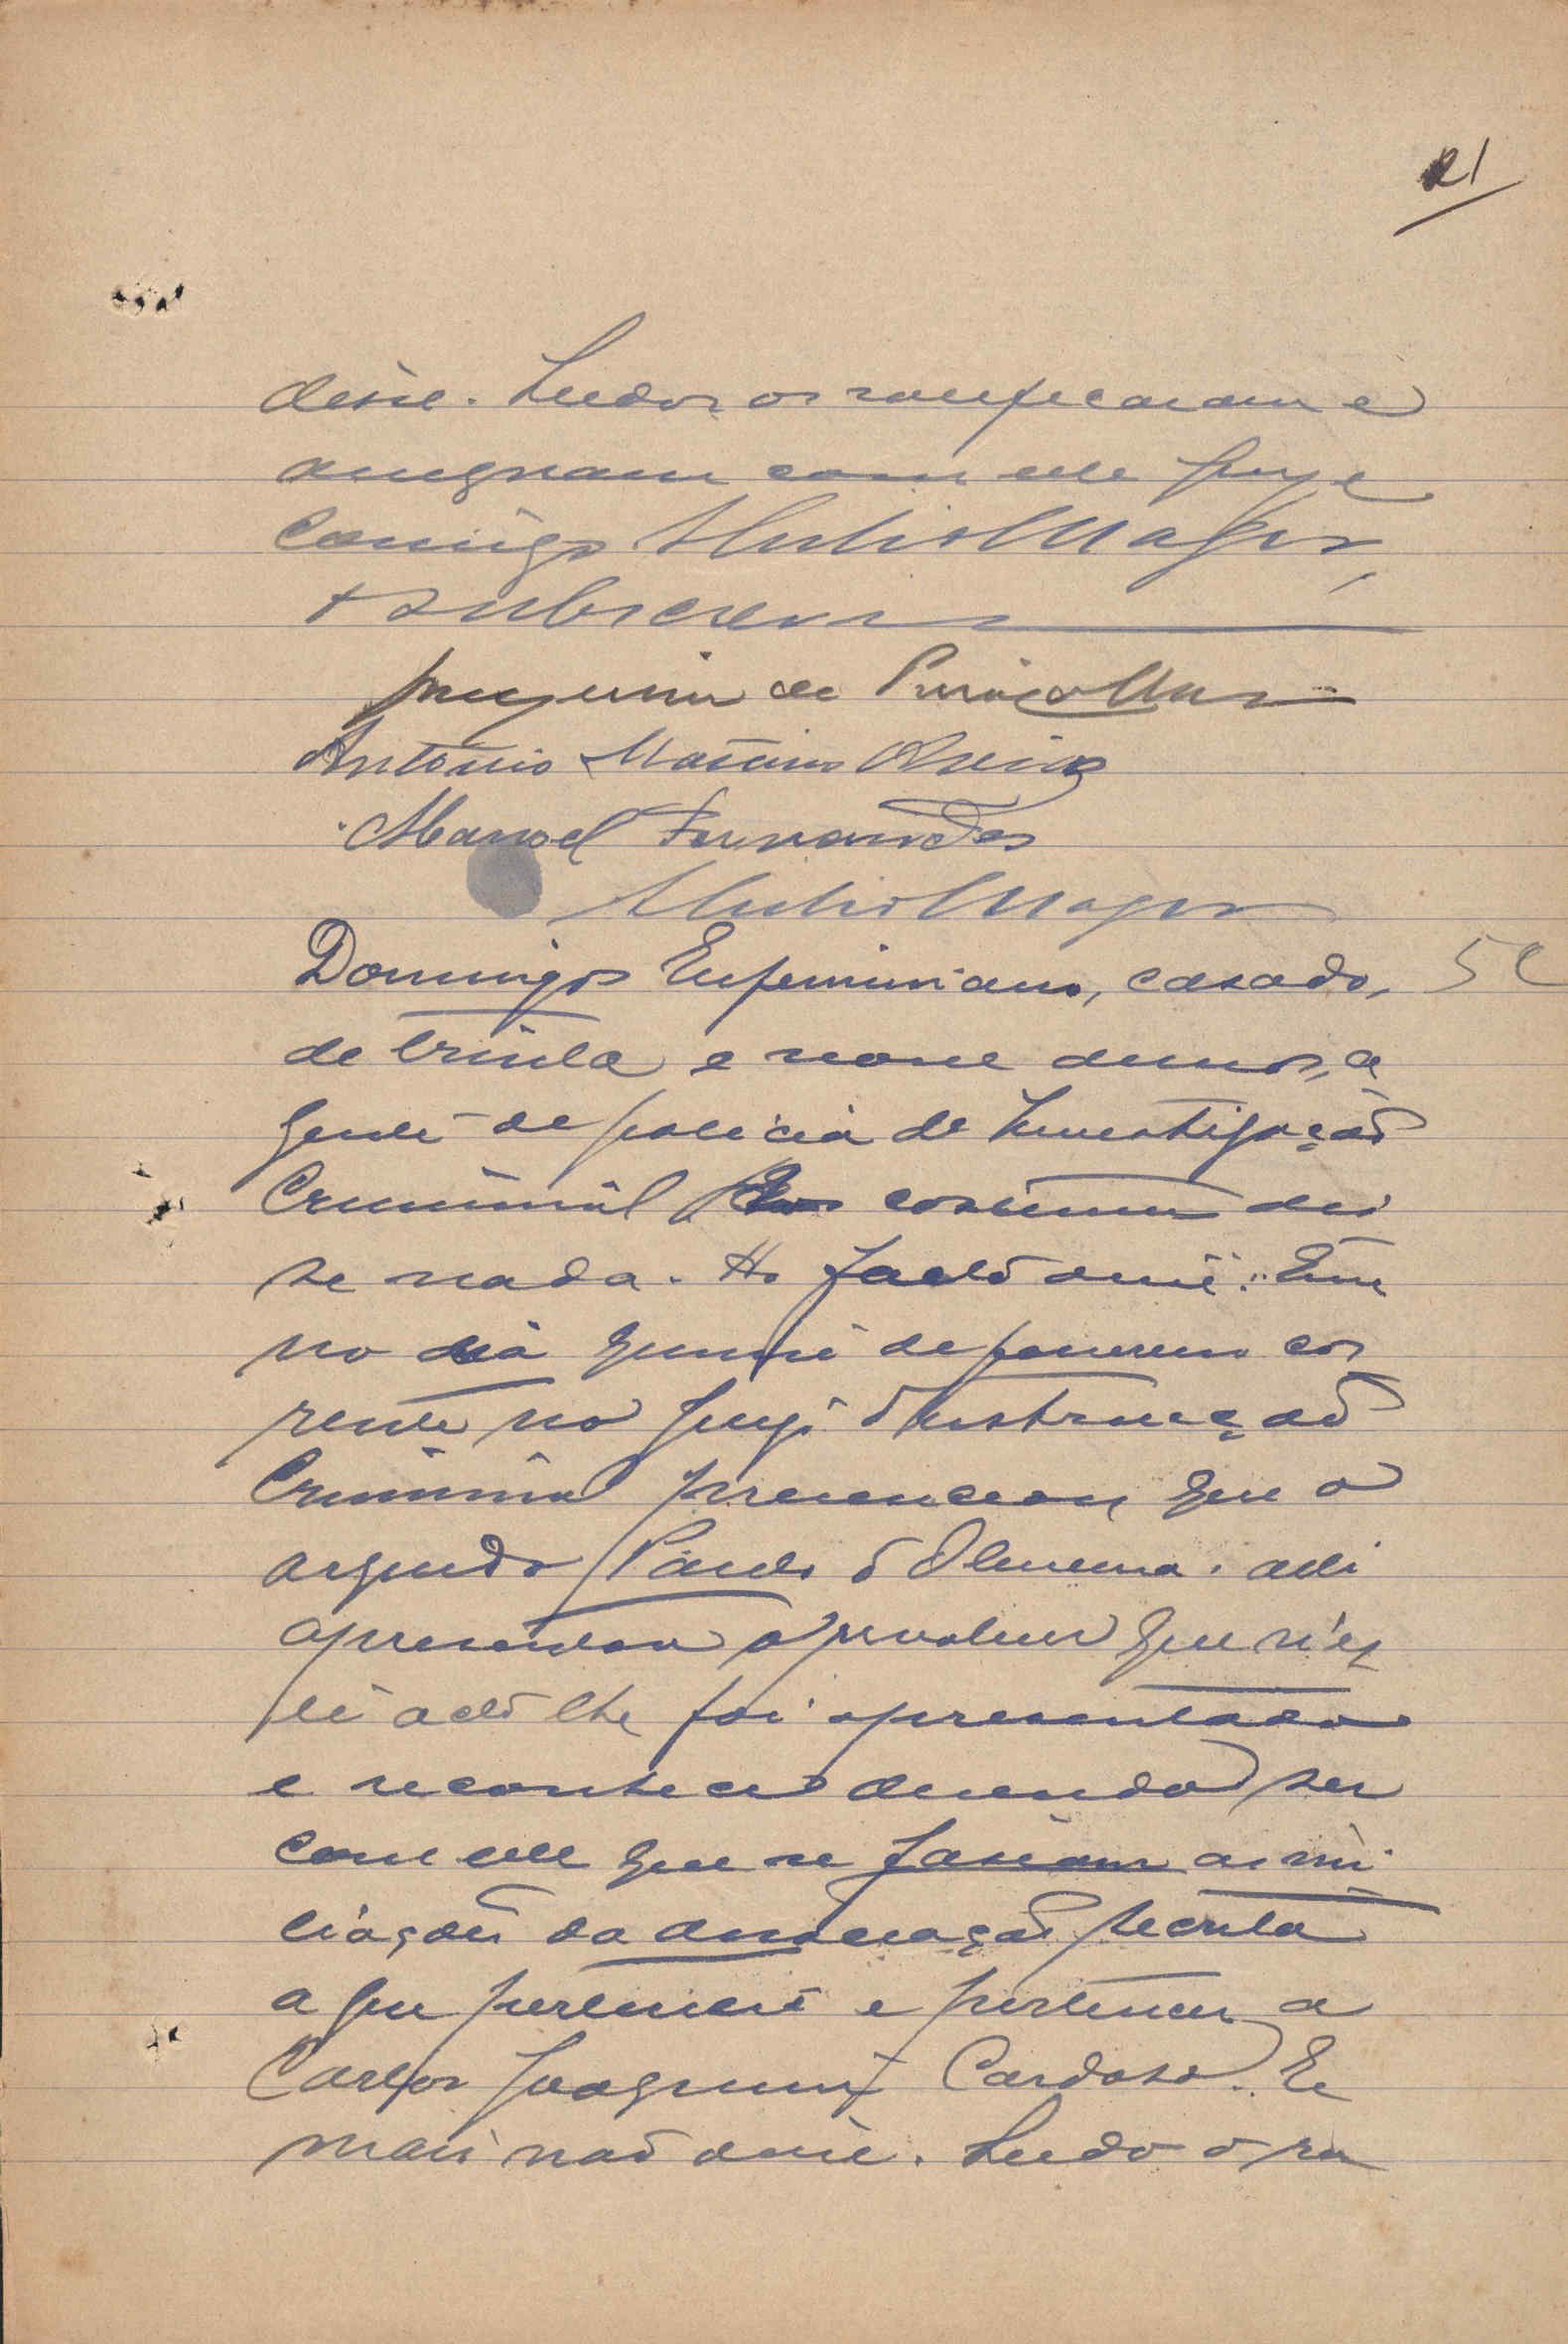 21
disse. Lidos os ratificaram e
assignam com elle juiz e
comigo
e subscrevi
Antonio
Manoel Fernandes
Domingos Eufeminiano, casado, 5
de trinta e nove annos, a
gente de policia de Investigação
Criminal costume dis
se nada. Ao facto disse: Que
no dia de fevereiro cor
rente no juizo d'Instrucção
Criminal presenceou que o
arguido Paulo d'Oliveira alli
apresentou o que n'es
te acto lhe foi apresentado
e reconhece dizendo ser
com elle que se fasiam as ini
ciações da associação secreta
a que pertence e pertenceu a
Carlos Joaquim Cardoso. E
mais não disse. Lido o ra